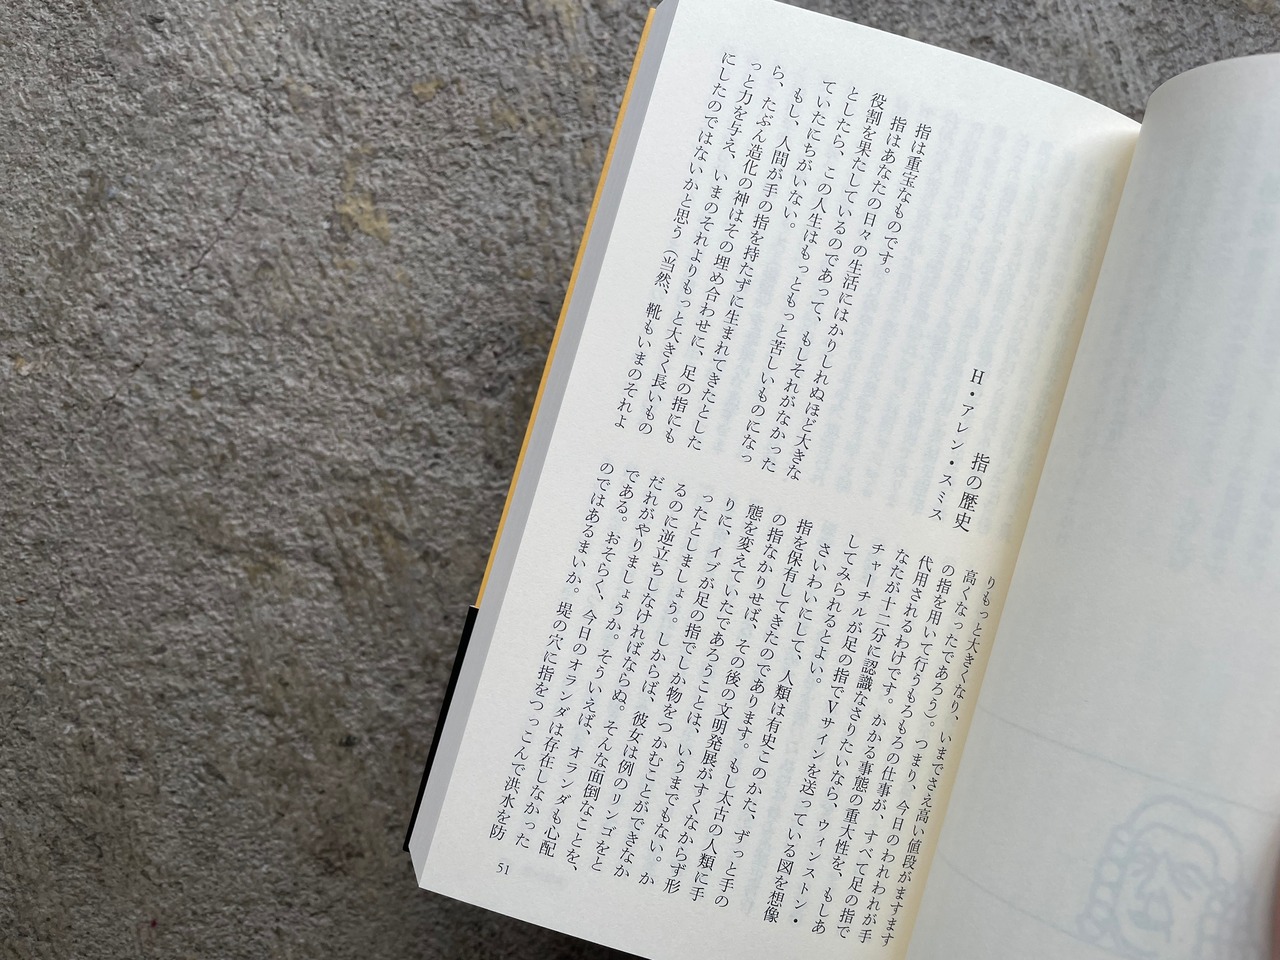 指の歴史
H・アレン・スミス
指は重宝なものです。
指はあなたの日々の生活にはかりしれぬほど大きな
役割を果たしているのであって、もしそれがなかった
としたら、この人生はもっともっと苦しいものになっ
ていたにちがいない。
もし、人間が手の指を持たずに生まれてきたとした
ら、たぶん造化の神はその埋め合わせに、足の指にも
っと力を与え、いまのそれよりもっと大きく長いもの
にしたのではないかと思う（当然、靴もいまのそれよ
りもっと大きくなり、いまでさえ高い値段がますます
高くなったであろう）。つまり、今日のわれわれが手
の指を用いて行うもろもろの仕事が、すべて足の指で
代用されるわけです。かかる事態の重大性を、もしあ
なたが十二分に認識なさりたいなら、ウィンストン・
チャーチルが足の指でVサインを送っている図を想像
してみられるとよい。
さいわいにして、人類は有史このかた、ずっと手の
指を保有してきたのであります。もし太古の人類に手
の指なかりせば、その後の文明発展がすくなからず形
態を変えていたであろうことは、いうまでもない。か
りに、イブが足の指でしか物をつかむことができなか
ったとしましょう。しからば、彼女は例のリンゴをと
るのに逆立ちしなければならぬ。そんな面倒なことを、
だれがやりましょうか。そういえば、オランダも心配
である。おそらく、今日のオランダは存在しなかった
のではあるまいか。堤の穴に指をつっこんで洪水を防
51